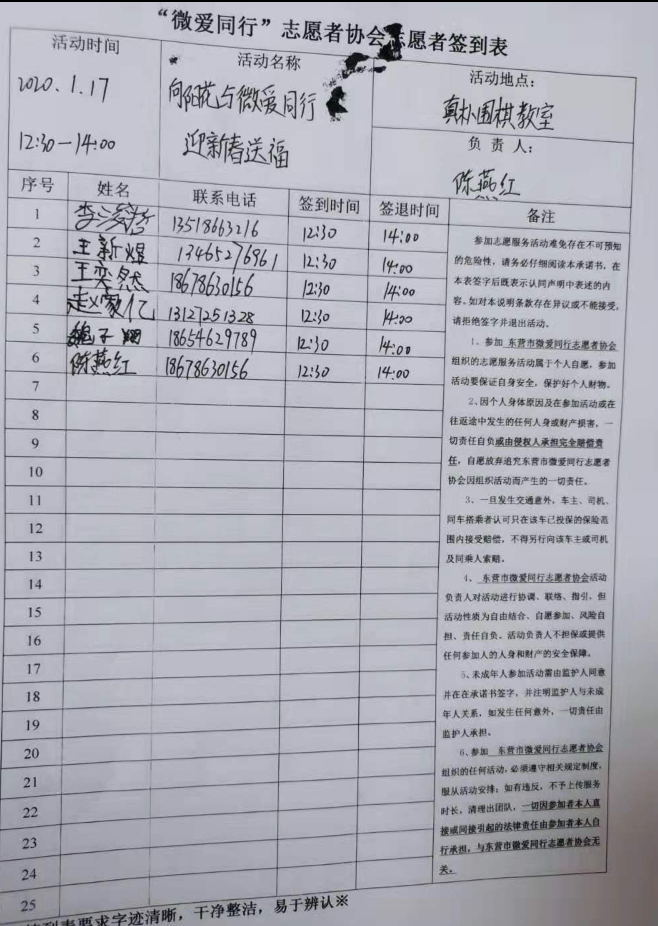 “微爱同行”志愿者协会志愿者签到表
活动时间
2020.1.17
12:30—14:00
活动名称
向阳花与微爱同行
迎新春送福
活动地点：
真朴围棋教室
负 责 人：
陈燕红
序号 姓名 联系电话 签到时间 签退时间 备注
1 13518663216 12:30 14:00
2 王新煜 13465276961 12:30 14:00
3 王奕然 18678630156 12:30 14:00
4 赵家亿 13127251328 12:30 14:00
5 魏子翔 18654629789 12:30 14:00
6 陈燕红 18678630156 12:30 14:00
7
8
9
10
11
12
13
14
15
16
17
18
19
20
21
22
23
24
25
参加志愿服务活动难免存在不可预知
的危险性，请务必仔细阅读本承诺书，在
本表签字后既表示认同声明中表述的内
容。如对本说明条款存在异议或不能接受，
请拒绝签字并退出活动。
1、参加 东营市微爱同行志愿者协会
组织的志愿服务活动属于个人自愿，参加
活动要保证自身安全，保护好个人财物。
2、因个人身体原因及在参加活动或在
往返途中发生的任何人身或财产损害，一
切责任自负或由侵权人承担完全赔偿责
任，自愿放弃追究东营市微爱同行志愿者
协会因组织活动而产生的一切责任。
3、一旦发生交通意外，车主、司机、
同车搭乘者认可只在该车已投保的保险范
围内接受赔偿，不得另行向该车主或司机
及同乘人索赔。
4、东营市微爱同行志愿者协会活动
负责人对活动进行协调、联络、指引，但
活动性质为自由结合、自愿参加、风险自
担、责任自负。活动负责人不担保或提供
任何参加人的人身和财产的安全保障。
5、未成年人参加活动需由监护人同意
并在在承诺书签字，并注明监护人与未成
年人关系，如发生任何意外，一切责任由
监护人承担。
6、参加 东营市微爱同行志愿者协会
组织的任何活动，必须遵守相关规定制度，
服从活动安排；如有违反，不予上传服务
时长，清理出团队，一切因参加者本人直
接或间接引起的法律责任由参加者本人自
行承担，与东营市微爱同行志愿者协会无
关。
签到表要求字迹清晰，干净整洁，易于辨认※